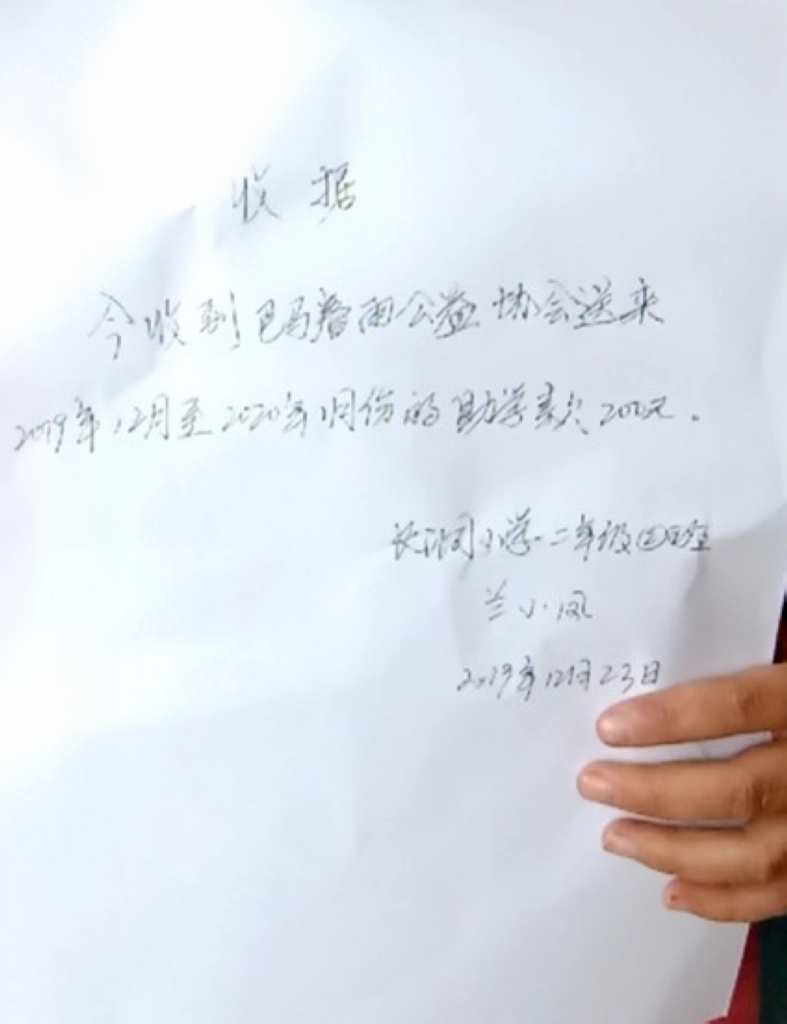 收据
今收到巴马春雨公益协会送来
2019年12月至2020年1月份的助学款200元.
长洞小学二年级 班
兰小凤
2019年12月23日